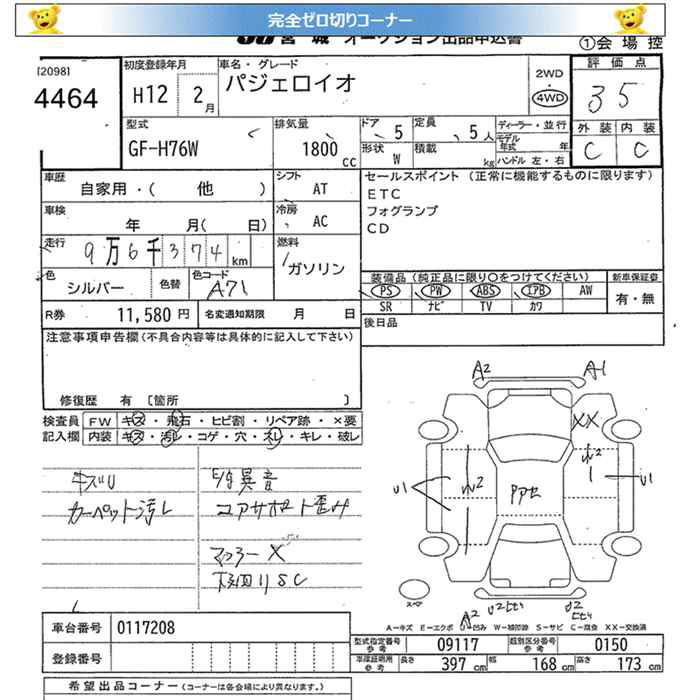 完全ゼロ切りコーナー
JU 宮 城 オークション出品申込書
①会 場 控
[2098]
4464
初度登録年月
H12 2月
車名・グレード
パジェロイオ
2WD
・
4WD
評 価 点
35
型式
GF-H76W
排気量
1800 cc
ドア 5
定員 5人
形状 W
積載 kg
ディーラー・並行
モデル年式 年
ハンドル 左・右
外 装 内 装
C C
車歴
自家用・( 他 )
シフト AT
セールスポイント (正常に機能するものに限ります)
ETC
フォグランプ
CD
車検
年 月( 日)
冷房 AC
走行
9万6千374km
燃料
ガソリン
色
シルバー
色替
色コード
A71
装備品(純正品に限り○をつけてください)
新車保証書
PS PW ABS エアB AW
SR ナビ TV カワ
有・無
R券 11,580 円
名変通知期限 月 日
後日品
注意事項申告欄(不具合内容等は具体的に記入して下さい)
修復歴 有 [箇所 ]
検査員 FW キズ・飛石・ヒビ割・リペア跡・×要
記入欄 内装 キズ・汚レ・コゲ・穴・スレ・キレ・破レ
キズU
カーペット汚レ
E/g異音
コアサポート歪み
マフラーX
下回りSC
A2 A1
XX
U1 U2 U2 U1
スペア
A2 U2 U2
A-キズ E-エクボ U-凹み W-補修跡 S-サビ C-腐食 XX-交換済
車台番号 0117208
登録番号
型式指定番号 参考 09117
類別区分番号 参考 0150
車庫証明用 参考 長さ 397 cm 幅 168 cm 高さ 173 cm
希望出品コーナー (コーナーは各会場により異なります。)